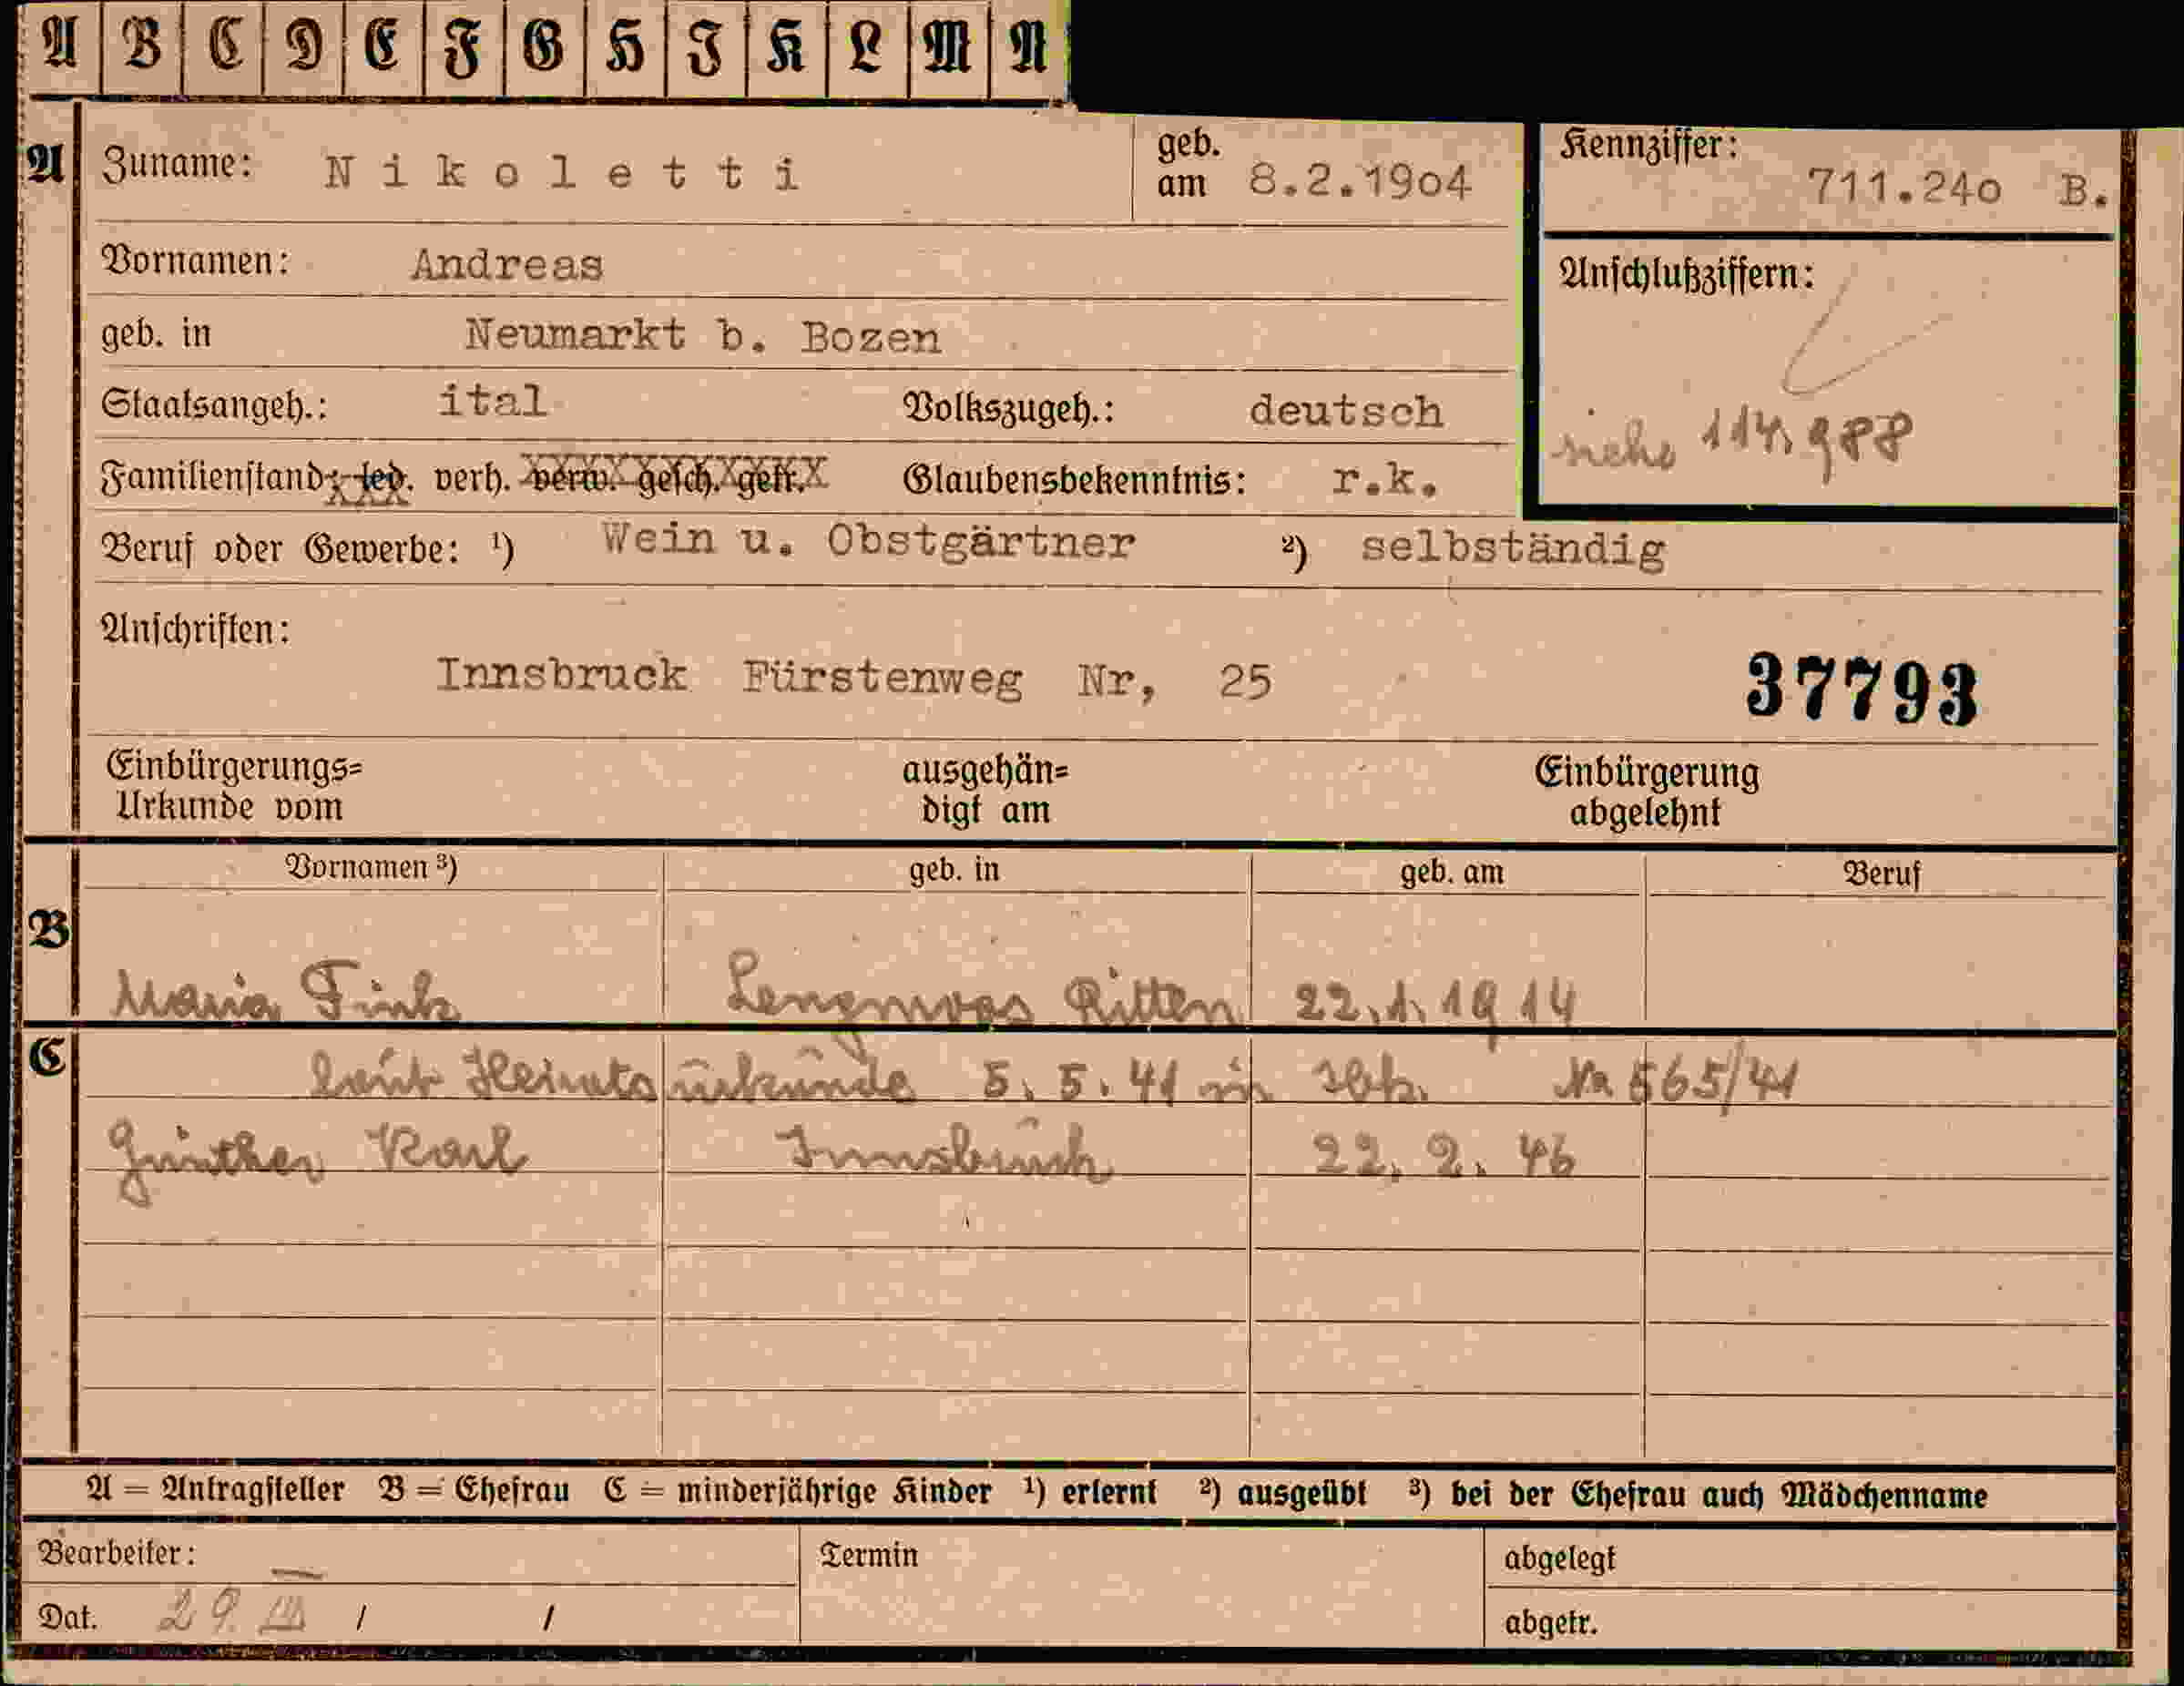 A B C D E F G H I K L M N
A Zuname: Nikoletti geb. am 8.2.1904 Kennziffer: 711.240 B.
Vornamen: Andreas Anschlußziffern:
geb. in Neumarkt b. Bozen
Staatsangeh.: ital Volkszugeh.: deutsch siehe 114,988
Familienstand: led. verh. verw. gesch. getr. Glaubensbekenntnis: r.k.
Beruf oder Gewerbe: ¹) Wein u. Obstgärtner ²) selbständig
Anschriften:
Innsbruck Fürstenweg Nr, 25 37793
Einbürgerungs= Urkunde vom ausgehän= digt am Einbürgerung abgelehnt
Vornamen ³) geb. in geb. am Beruf
B
Maria Fink Lengmoos Ritten 22.1.1914
C
laut Heiratsurkunde 5. 5. 41 in Ibk. No 565/41
Günther Karl Innsbruck 22. 2. 46
A = Antragsteller B = Ehefrau C = minderjährige Kinder ¹) erlernt ²) ausgeübt ³) bei der Ehefrau auch Mädchenname
Bearbeiter: Termin abgelegt
Dat. 29. / / abgetr.